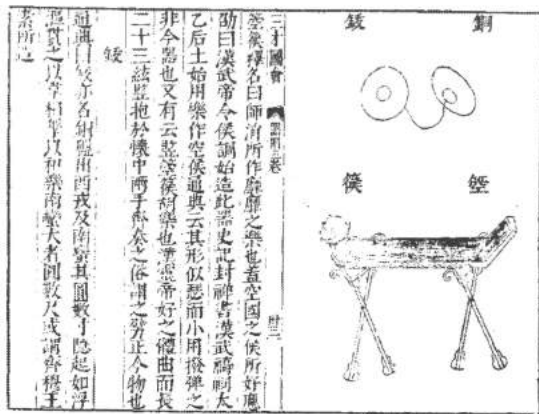 銅鈸
箜篌
三才圖會 器用三卷 廿三
箜篌釋名曰師涓所作靡靡之樂也蓋空國之侯所好應
劭曰漢武帝令侯調始造此器史記封禪書漢武禱祠太
乙后土始用樂作空侯通典云其形似瑟而小用撥彈之
非今器也又有云豎箜篌胡樂也漢靈帝好之體曲而長
二十三絃豎抱於懷中兩手齊奏之俗謂之擘正今物也
鈸
通典曰鈸亦名銅盤出西戎及南蠻其圓數寸隱起如浮
漚貫之以韋相擊以和樂南蠻大者圓數尺或謂齊穆王
素所造